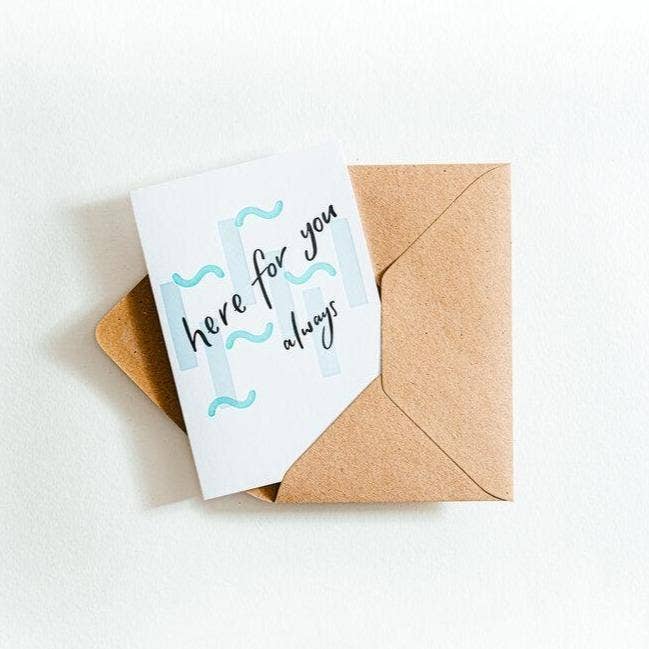 here for you
always